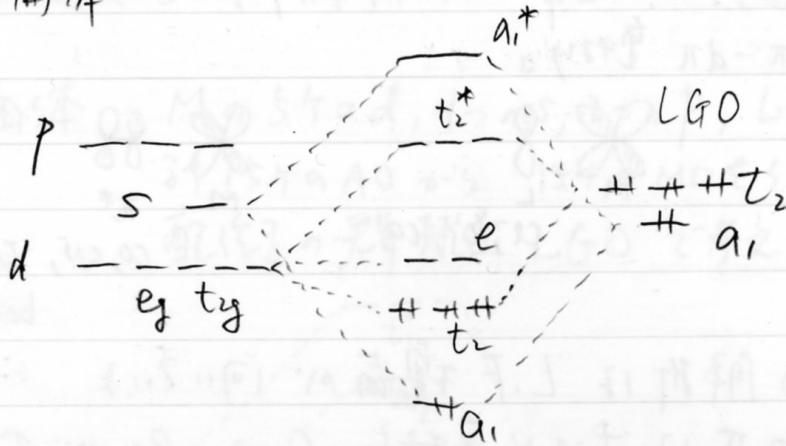 a₁*
t₂*
LGO
p
t₂
s
a₁
e
d
eg t₂g
t₂
a₁